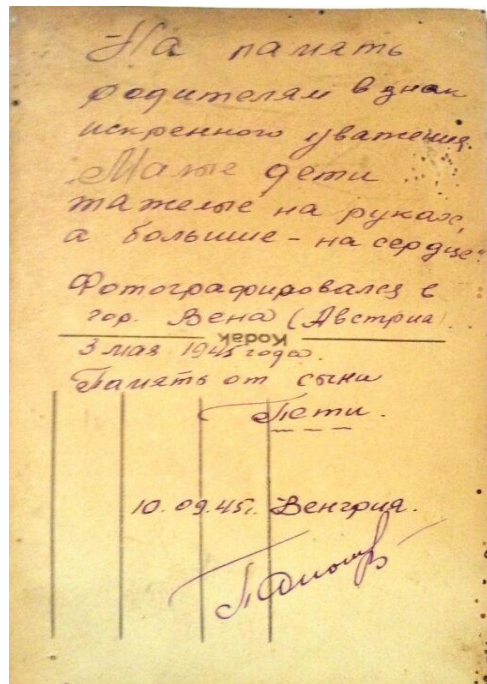 На память
родителям в знак
искренного уважения.
„Малые дети
тяжелые на руках,
а большие – на сердце“
Фотографировался в
гор. Вена (Австрия).
Kodak
3 мая 1945 года.
Память от сына
Пети.
10.09.45г. Венгрия.